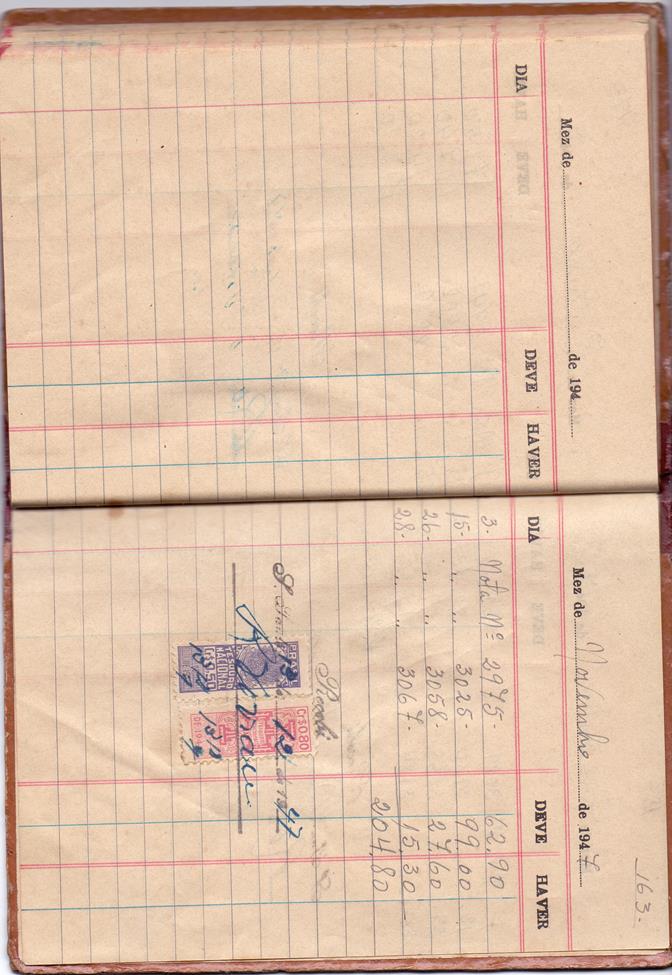 Mez de de 194
DIA DEVE HAVER
163.
Mez de Novembro de 1947
DIA DEVE HAVER
3. Nota Nº 2975. 62,90
15. " " 3025. 99,00
26. " " 3058. 27,60
28. " " 3067. 15,30
204,80
Recebi
S.
12 47
BRASIL
TESOURO
NACIONAL
Cr$ 0,80